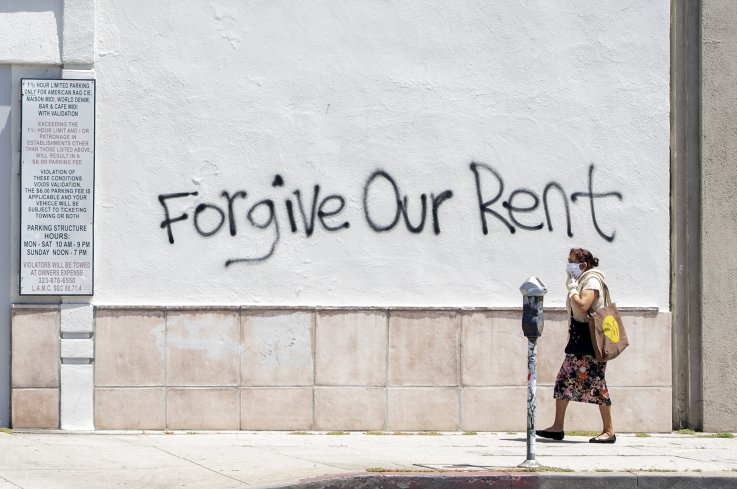 1½ HOUR LIMITED PARKING
ONLY FOR AMERICAN RAG CIE,
MAISON MIDI, WORLD DENIM,
BAR & CAFE MIDI
WITH VALIDATION
EXCEEDING THE
1½ HOUR LIMIT AND / OR
PATRONAGE IN
ESTABLISHMENTS OTHER
THAN THOSE LISTED ABOVE
WILL RESULT IN A
$6.00 PARKING FEE
VIOLATION OF
THESE CONDITIONS
VOIDS VALIDATION,
THE $6.00 PARKING FEE IS
APPLICABLE AND YOUR
VEHICLE WILL BE
SUBJECT TO TICKETING
TOWING OR BOTH
PARKING STRUCTURE
HOURS:
MON - SAT 10 AM - 9 PM
SUNDAY NOON - 7 PM
VIOLATORS WILL BE TOWED
AT OWNERS EXPENSE
323-876-6550
L.A.M.C. SEC 80.71.4
Forgive Our Rent